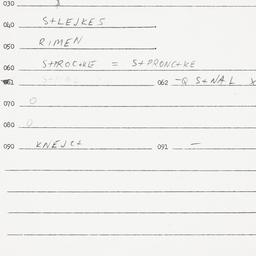 030
040 S+LEJKES
050 RIMEN
060 S+PROC+KE = S+PRONC+KE
061 S+NAL 062 -Q S+NAL X
070 O
080 O
090 KNEJC+ 091 —